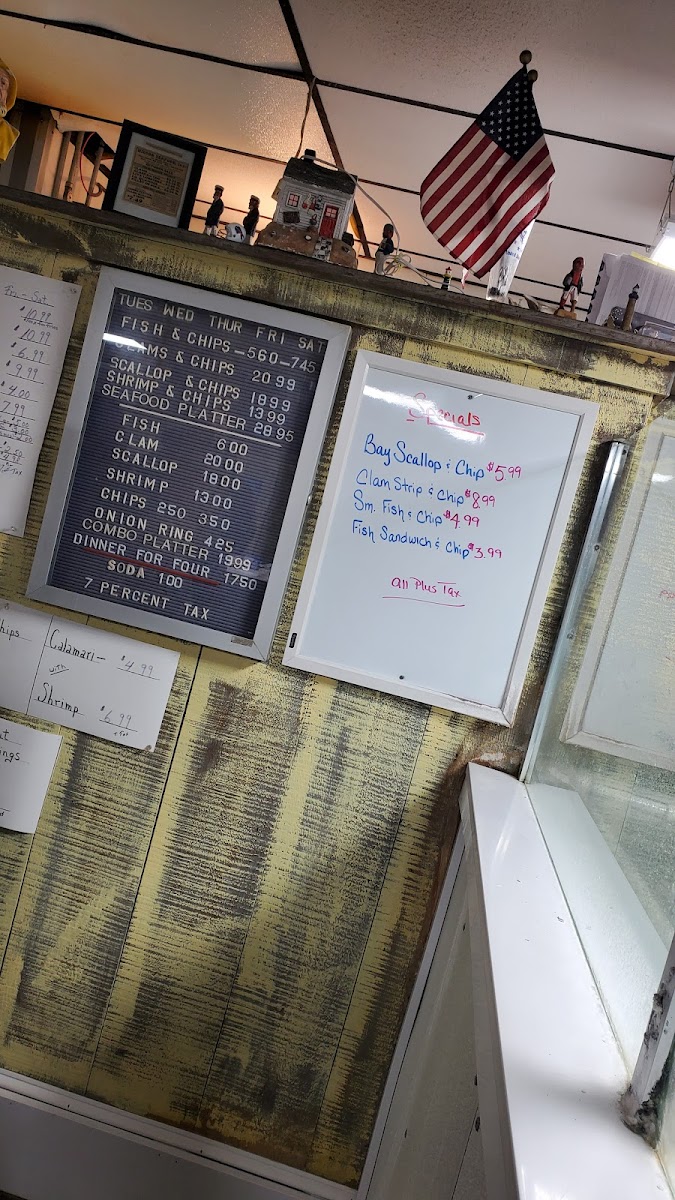 Fri - Sat
$10.99
10.99
6.99
$9.99
$4.00
7.99
TUES WED THUR FRI SAT
FISH & CHIPS - 560 - 745
CLAMS & CHIPS 2099
SCALLOP & CHIPS 1899
SHRIMP & CHIPS 1399
SEAFOOD PLATTER 2895
FISH 600
CLAM 2000
SCALLOP 1800
SHRIMP 1300
CHIPS 250 350
ONION RING 425
COMBO PLATTER 1999
DINNER FOR FOUR 1750
SODA 100
7 PERCENT TAX
Specials
Bay Scallop & Chip $5.99
Clam Strip & Chip $8.99
Sm. Fish & Chip $4.99
Fish Sandwich & Chip $3.99
All Plus Tax
hips
Calamari - $4.99
with
Shrimp $6.99
ngs